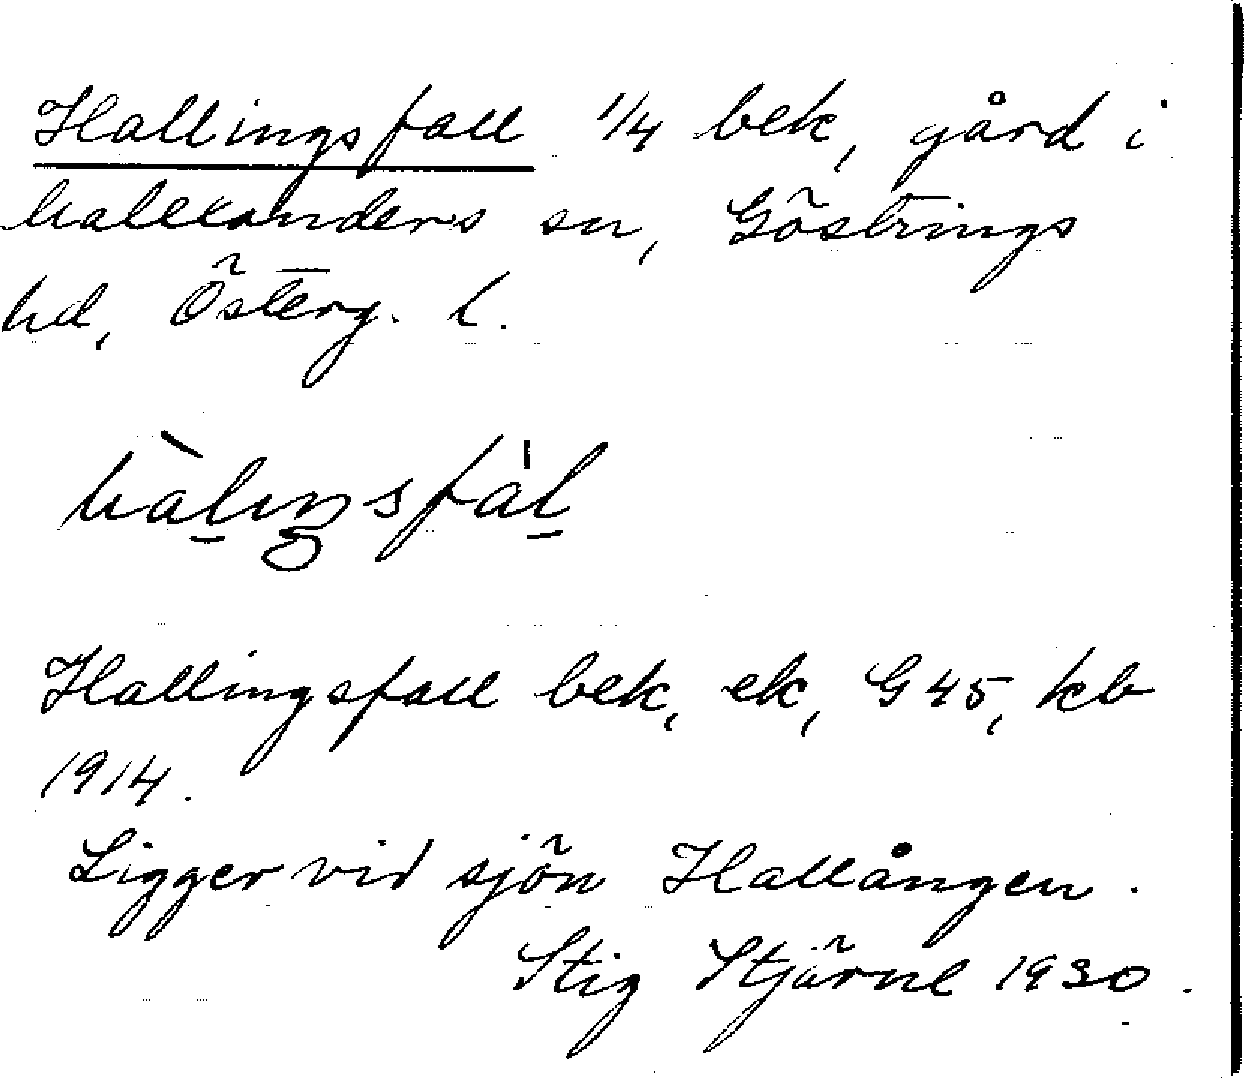 Hallingsfall 1/4 bek, gård i
Kallkanders sn, Göstrings
hd, Österg. l.
hàlıŋsfàl
Hallingsfall bek, ek, G 45, kb
1914.
Ligger vid sjön Hallången.
Stig Stjärne 1930.